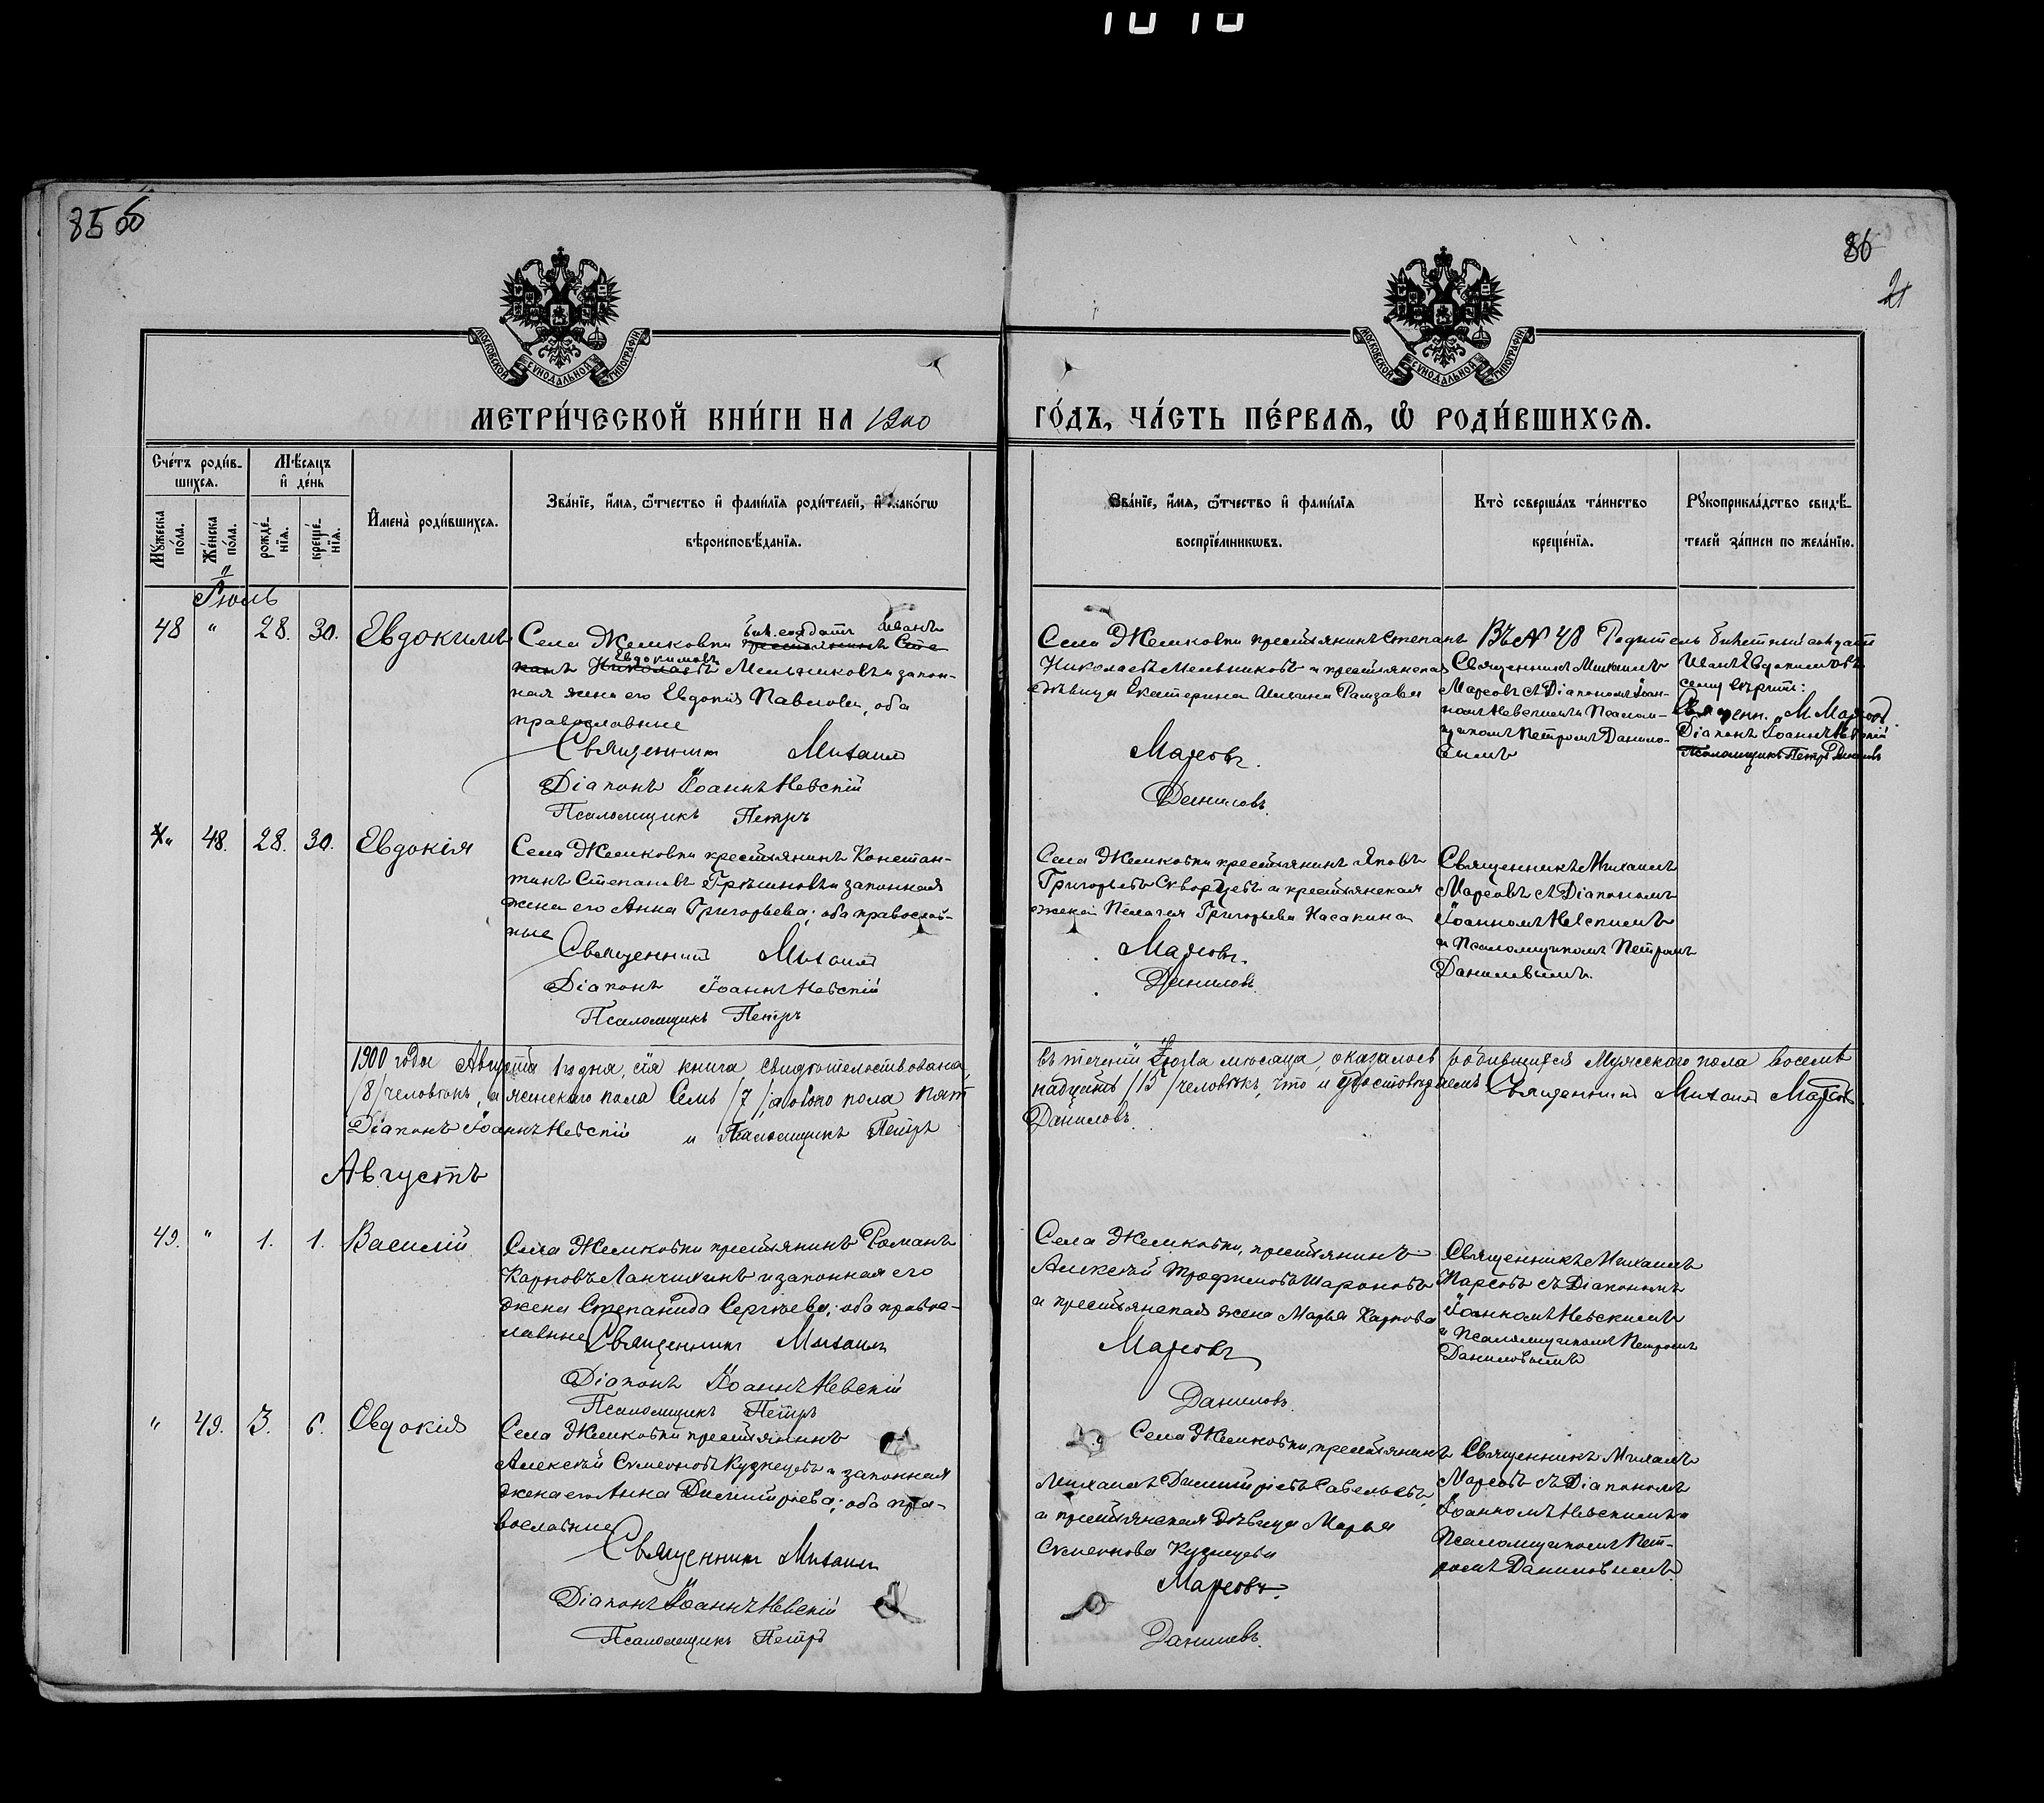 85 об
86
21
МОСКОВСКОЙ СѴНОДАЛЬНОЙ ТИПОГРАФІИ
МОСКОВСКОЙ СѴНОДАЛЬНОЙ ТИПОГРАФІИ
МЕТРИ́ЧЕСКОЙ КНИ́ГИ НА 1900
ГО́ДЪ, ЧА́СТЬ ПЕ́РВАЯ, Ѡ҆ РОДИ́ВШИХСЯ.
Сче́тъ роди́в-
шихся.
Мѣ́сяцъ
и҆ де́нь
Мꙋ́жеска по́ла.
Же́нска по́ла.
рожде́-нїя.
креще́-нїя.
И҆мена̀ роди́вшихся.
Зва́нїе, и҆́мя, ѻ҆́тчество и҆ фами́лїя роди́телей, и҆ како́гѡ
вѣроисповѣ́данїя.
Зва́нїе, и҆́мя, ѻ҆́тчество и҆ фами́лїя
воспрїе́мникѡвъ.
Кто̀ соверша́лъ та́инство
креще́нїя.
Рꙋкоприкла́дство свидѣ́-
телей за́писи по жела́нїю.
Іюль
48 " 28. 30. Евдокимъ
Села Жемковки бил. солдатъ Иванъ
крестьянинъ Сте-
панъ Николаевъ Евдокимовъ Мельниковъ и закон-
ная жена его Евдокія Павлова, оба
православные
Священникъ Михаилъ
Діаконъ Іоаннъ Невскій
Псаломщикъ Петръ
Села Жемковки крестьянинъ Степанъ
Николаевъ Мельниковъ и крестьянская
дѣвица Екатерина
Марсовъ.
Даниловъ.
Священникъ Михаилъ
Марсовъ съ Діакономъ Іоан-
номъ Невскимъ и Псалом-
щикомъ Петромъ Данило-
вымъ
Въ № 48 Родитель билетный солдатъ
Иванъ Евдокимовъ
сему вѣрить:
Священ. М. Марсовъ.
Діаконъ Іоаннъ Невскій
Псаломщикъ Петръ Даниловъ
" 48. 28. 30. Евдокія
Села Жемковки крестьянинъ Констан-
тинъ Степановъ Грѣшновъ и законная
жена его Анна Григорьева; оба православ-
ные
Священникъ Михаилъ
Діаконъ Іоаннъ Невскій
Псаломщикъ Петръ
Села Жемковки крестьянинъ Яковъ
Григорьевъ Скворцевъ и крестьянская
жена Пелагея Григорьева Насакина
Марсовъ.
Даниловъ.
Священникъ Михаилъ
Марсовъ съ Діакономъ
Іоанномъ Невскимъ
и Псаломщикомъ Петромъ
Даниловымъ.
1900 года Августа 1го дня, сія книга свидѣтельствована, въ теченіи Іюля мѣсяца, оказалось родившихся Мужескаго пола восемь
/8/ человѣкъ, а женскаго пола Семь /7/, а обоего пола пят надцать /15/ человѣкъ, что и удостовѣряемъ Священникъ Михаилъ Марсовъ
Діаконъ Іоаннъ Невскій и Псаломщикъ Петръ Даниловъ.
Августъ
49. " 1. 1. Василій
Села Жемковки крестьянинъ Романъ
Карповъ Ланчихинъ и законная его
жена Степанида Сергѣева; оба правос-
лавные
Священникъ Михаилъ
Діаконъ Іоаннъ Невскій
Псаломщикъ Петръ
Села Жемковки, крестьянинъ
Алексѣй Трофимовъ Шароновъ
и крестьянская жена Марья Карпова
Марсовъ
Даниловъ.
Священникъ Михаилъ
Марсовъ съ Діакономъ
Іоанномъ Невскимъ
и Псаломщикомъ Петромъ
Даниловымъ
" 49. 3. 6. Евдокія
Села Жемковки крестьянинъ
Алексѣй Симеоновъ Кузнецовъ и законная
жена его Анна Димитріева; оба пра-
вославные
Священникъ Михаилъ
Діаконъ Іоаннъ Невскій
Псаломщикъ Петръ
Села Жемковки, крестьянинъ
Михаилъ Димитріевъ Савельевъ,
и крестьянская дѣвица Марья
Симеонова Кузнецова
Марсовъ.
Даниловъ.
Священникъ Михаилъ
Марсовъ съ Діакономъ
Іоанномъ Невскимъ и
Псаломщикомъ Пет-
ромъ Даниловымъ